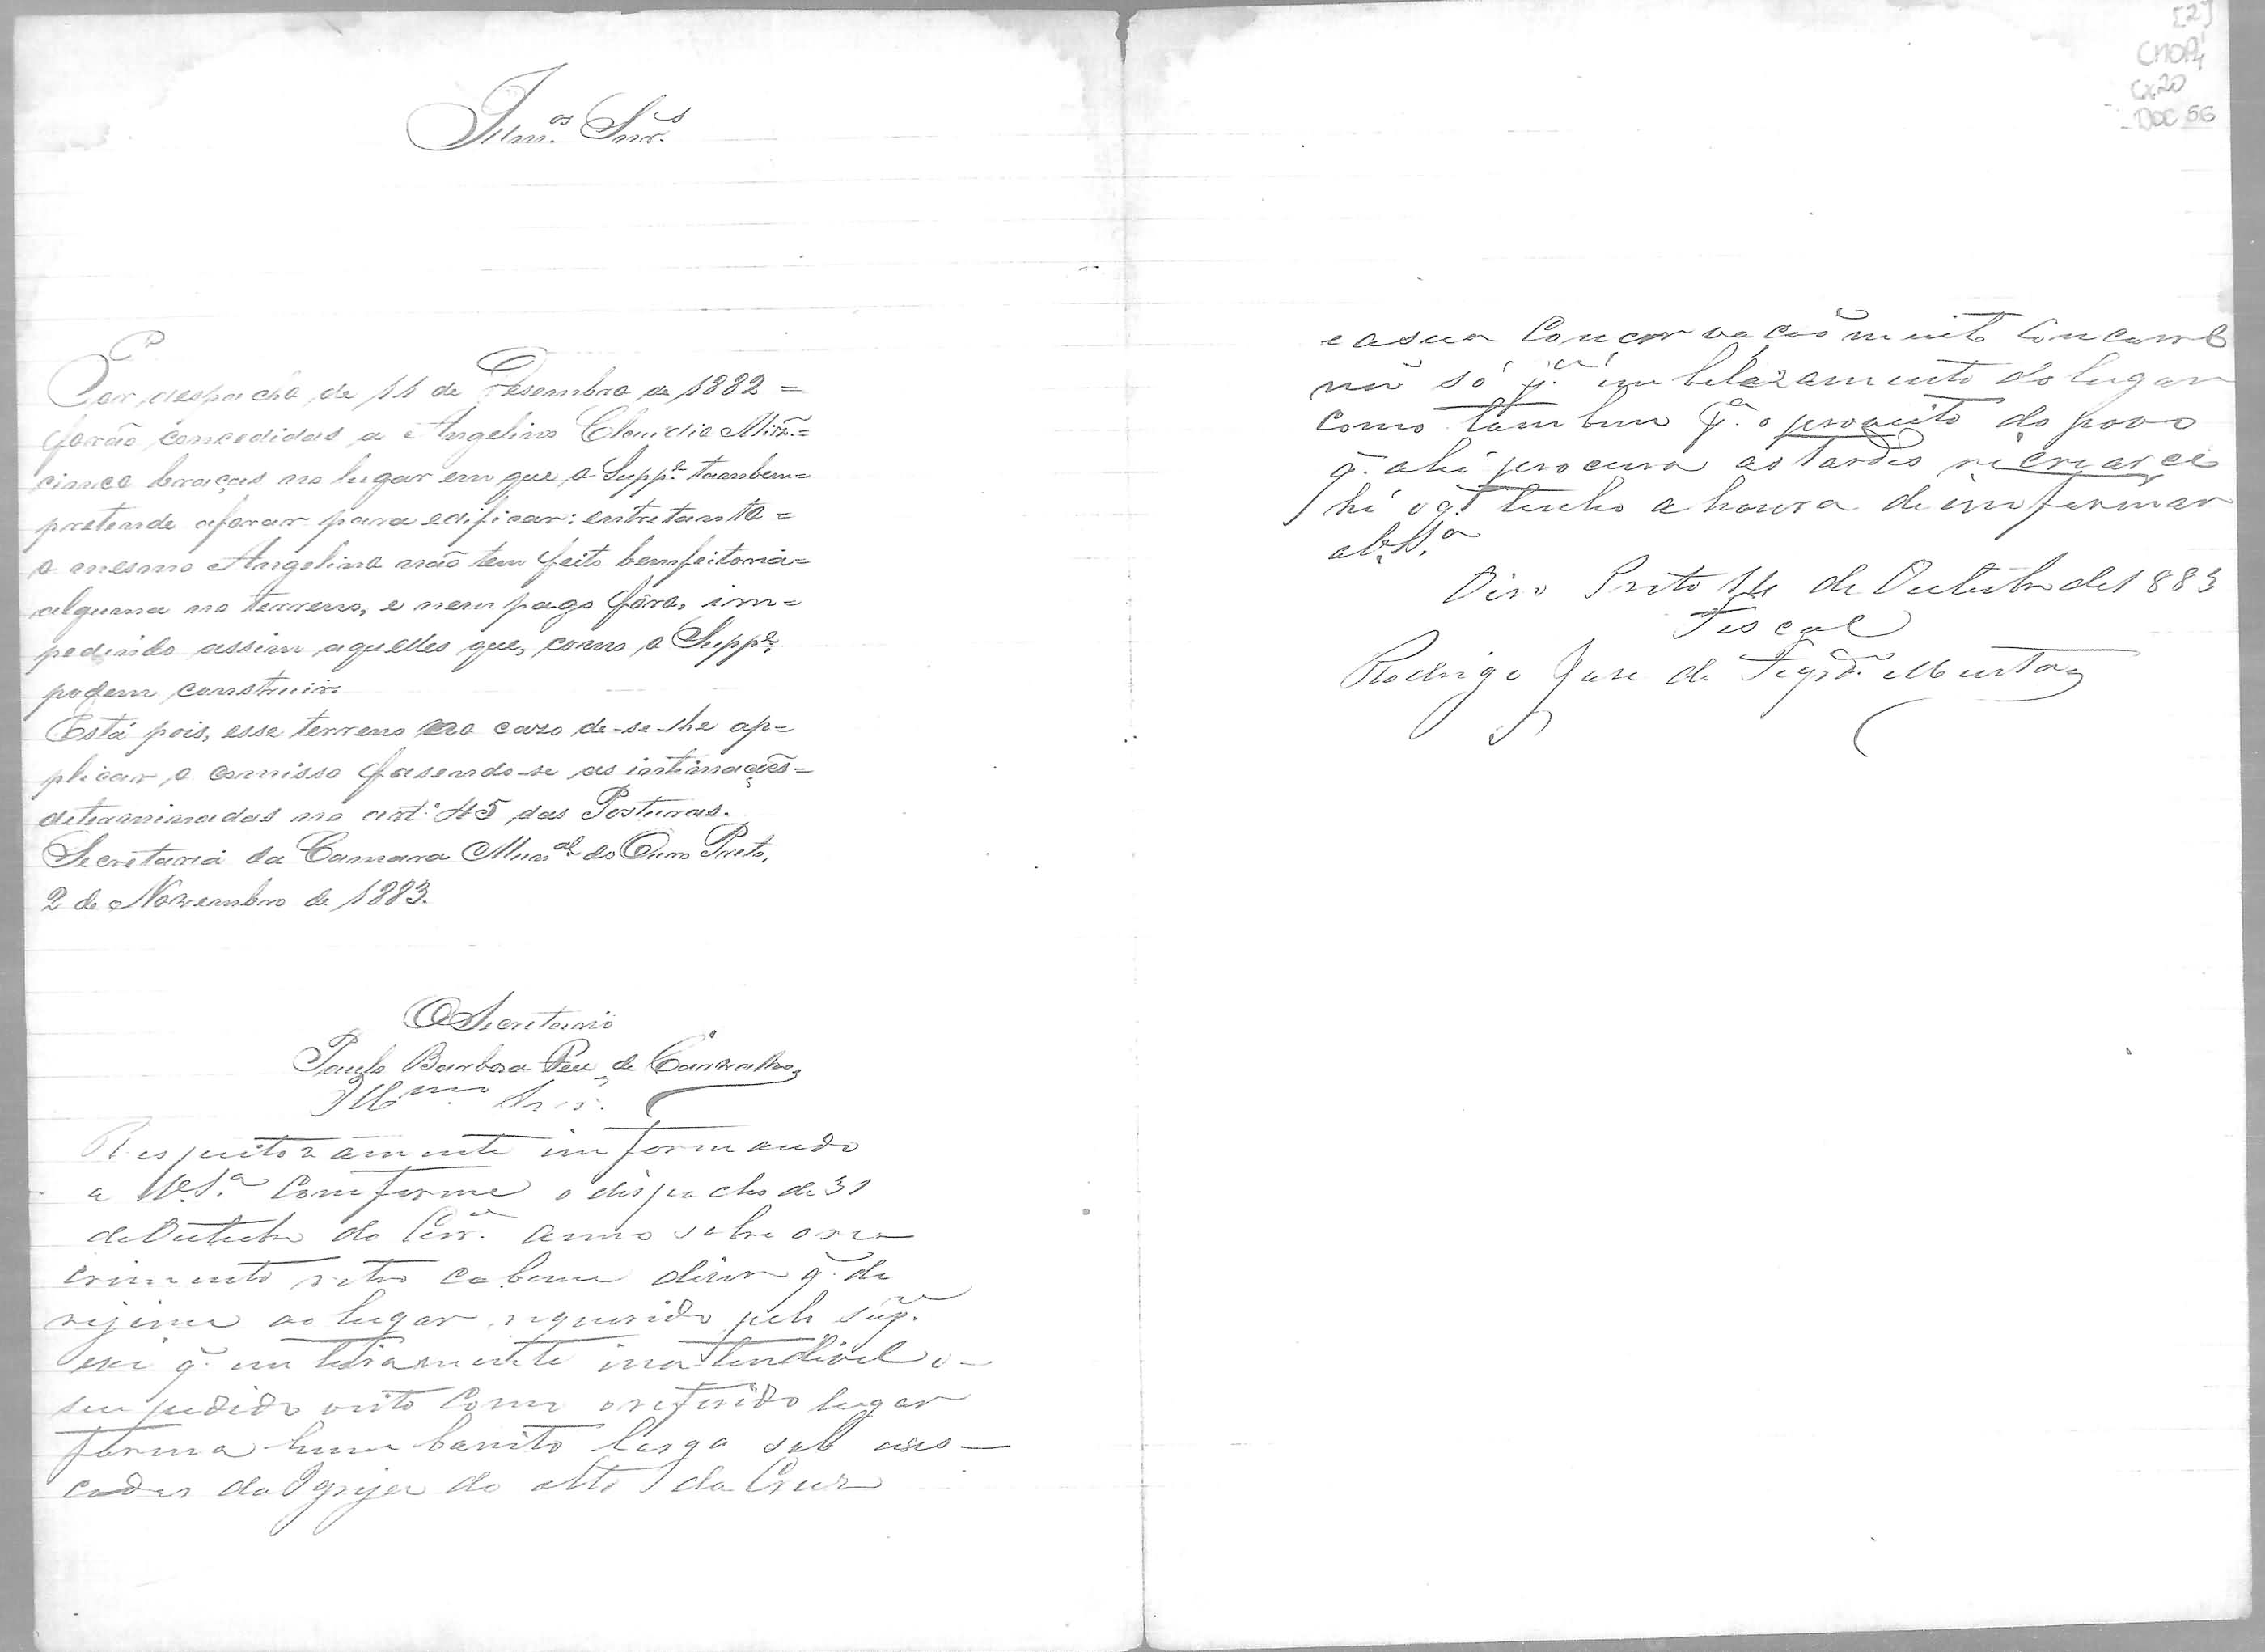 Illm.os Snr.s
Por despacho de 11 de Desembro de 1882 =
forão concedidas a Angelino Claudio Mirã.=
cinco braças no lugar em que o Supp.e tambem=
pretende aforar para edificar: entretanto =
o mesmo Angelino não tem feito bemfeitoria=
alguma no terreno, e nem pago fôro, im=
pedindo assim aquelles que, como o Supp.e,
podem construir.
Está pois, esse terreno no caso de-se-lhe ap=
plicar o comisso fasendo-se as intimações=
determinadas no art.º 45 das Posturas.
Secretaria da Camara Mun.al do Ouro Preto,
2 de Novembro de 1883.
O Secretario
Paulo Barbosa de Carvalho
Ill.mo Snr.
Respeitozamente imformando
a V.S.ª Comforme o dispacho de 31
de Outubr do Corr.e anno sobre o re
crimento retro cabeme diser q. de
rijime ao lugar requerido pelo sup.e
q. inteiramente inatendivel o
seu pedido visto Como o referido lugar
forma hum bonito largo sob as es
cadas da Igrija do alto da Cruz
e a sua Concervacão muito Comcorre
não só p.ª imbelezamento do lugar
como tambem p.ª o proveito do povo
q. ahi procura as tardes recriarce
hé o q. tenho a honra de imformar
a V.S.ª
Oiro Preto 14 de Outubr de 1883
Fiscal
Rodrigo Jose de Figrd.º Murta
[2]
CMOP
Cx 20
DOC 56